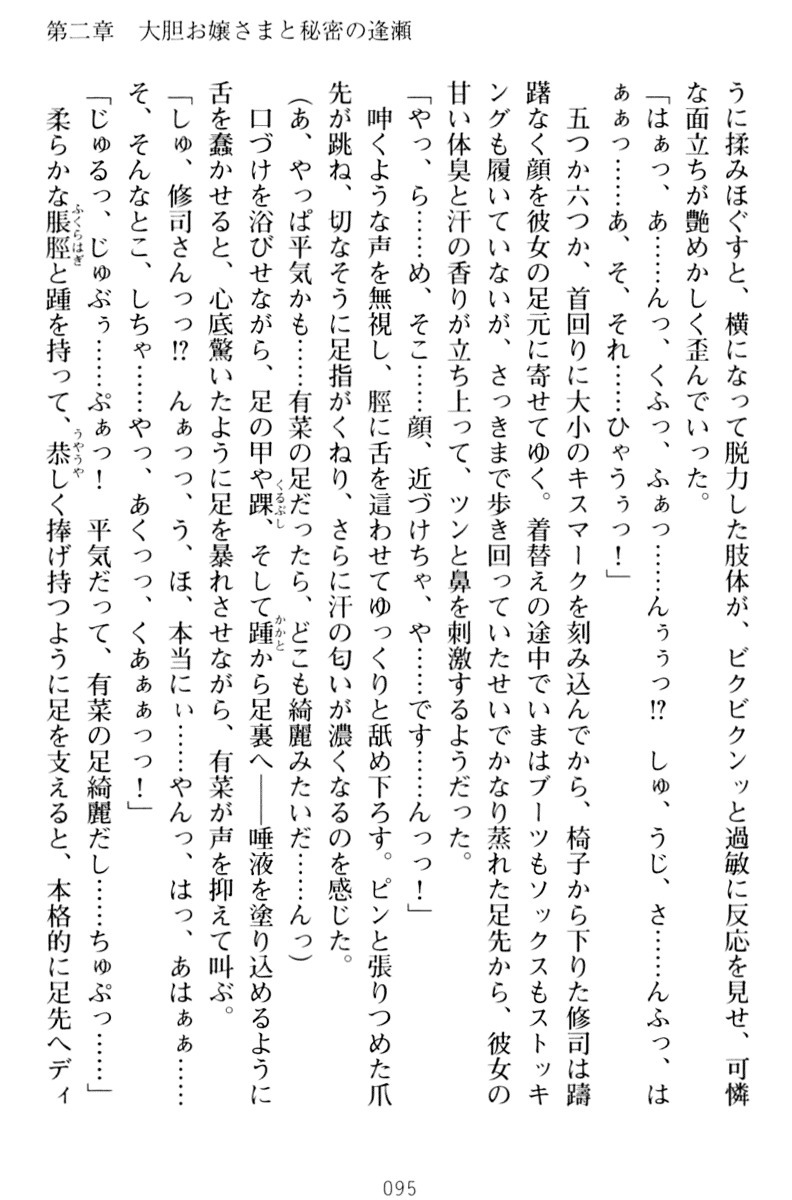 第二章　大胆お嬢さまと秘密の逢瀬
うに揉みほぐすと、横になって脱力した肢体が、ビクビクンッと過敏に反応を見せ、可憐
な面立ちが艶めかしく歪んでいった。
「はぁっ、あ……んっ、くふっ、ふぁっ……んぅぅっ!?　しゅ、うじ、さ……んふっ、は
ぁぁっ……あ、そ、それ……ひゃうぅっ！」
　五つか六つか、首回りに大小のキスマークを刻み込んでから、椅子から下りた修司は躊
躇なく顔を彼女の足元に寄せてゆく。着替えの途中でいまはブーツもソックスもストッキ
ングも履いていないが、さっきまで歩き回っていたせいでかなり蒸れた足先から、彼女の
甘い体臭と汗の香りが立ち上って、ツンと鼻を刺激するようだった。
「やっ、ら……め、そこ……顔、近づけちゃ、や……です……んっっ！」
　呻くような声を無視し、脛に舌を這わせてゆっくりと舐め下ろす。ピンと張りつめた爪
先が跳ね、切なそうに足指がくねり、さらに汗の匂いが濃くなるのを感じた。
（あ、やっぱ平気かも……有菜の足だったら、どこも綺麗みたいだ……んっ）
　口づけを浴びせながら、足の甲や踝、そして踵から足裏へ――唾液を塗り込めるように
舌を蠢かせると、心底驚いたように足を暴れさせながら、有菜が声を抑えて叫ぶ。
「しゅ、修司さんっっ!?　んぁっっ、う、ほ、本当にぃ……やんっ、はっ、あはぁぁ……
そ、そんなとこ、しちゃ……やっ、あくっっ、くあぁぁっっ！」
「じゅるっ、じゅぶぅ……ぷぁっ！　平気だって、有菜の足綺麗だし……ちゅぷっ……」
　柔らかな脹脛と踵を持って、恭しく捧げ持つように足を支えると、本格的に足先へディ
くるぶし
かかと
ふくらはぎ
うやうや
095